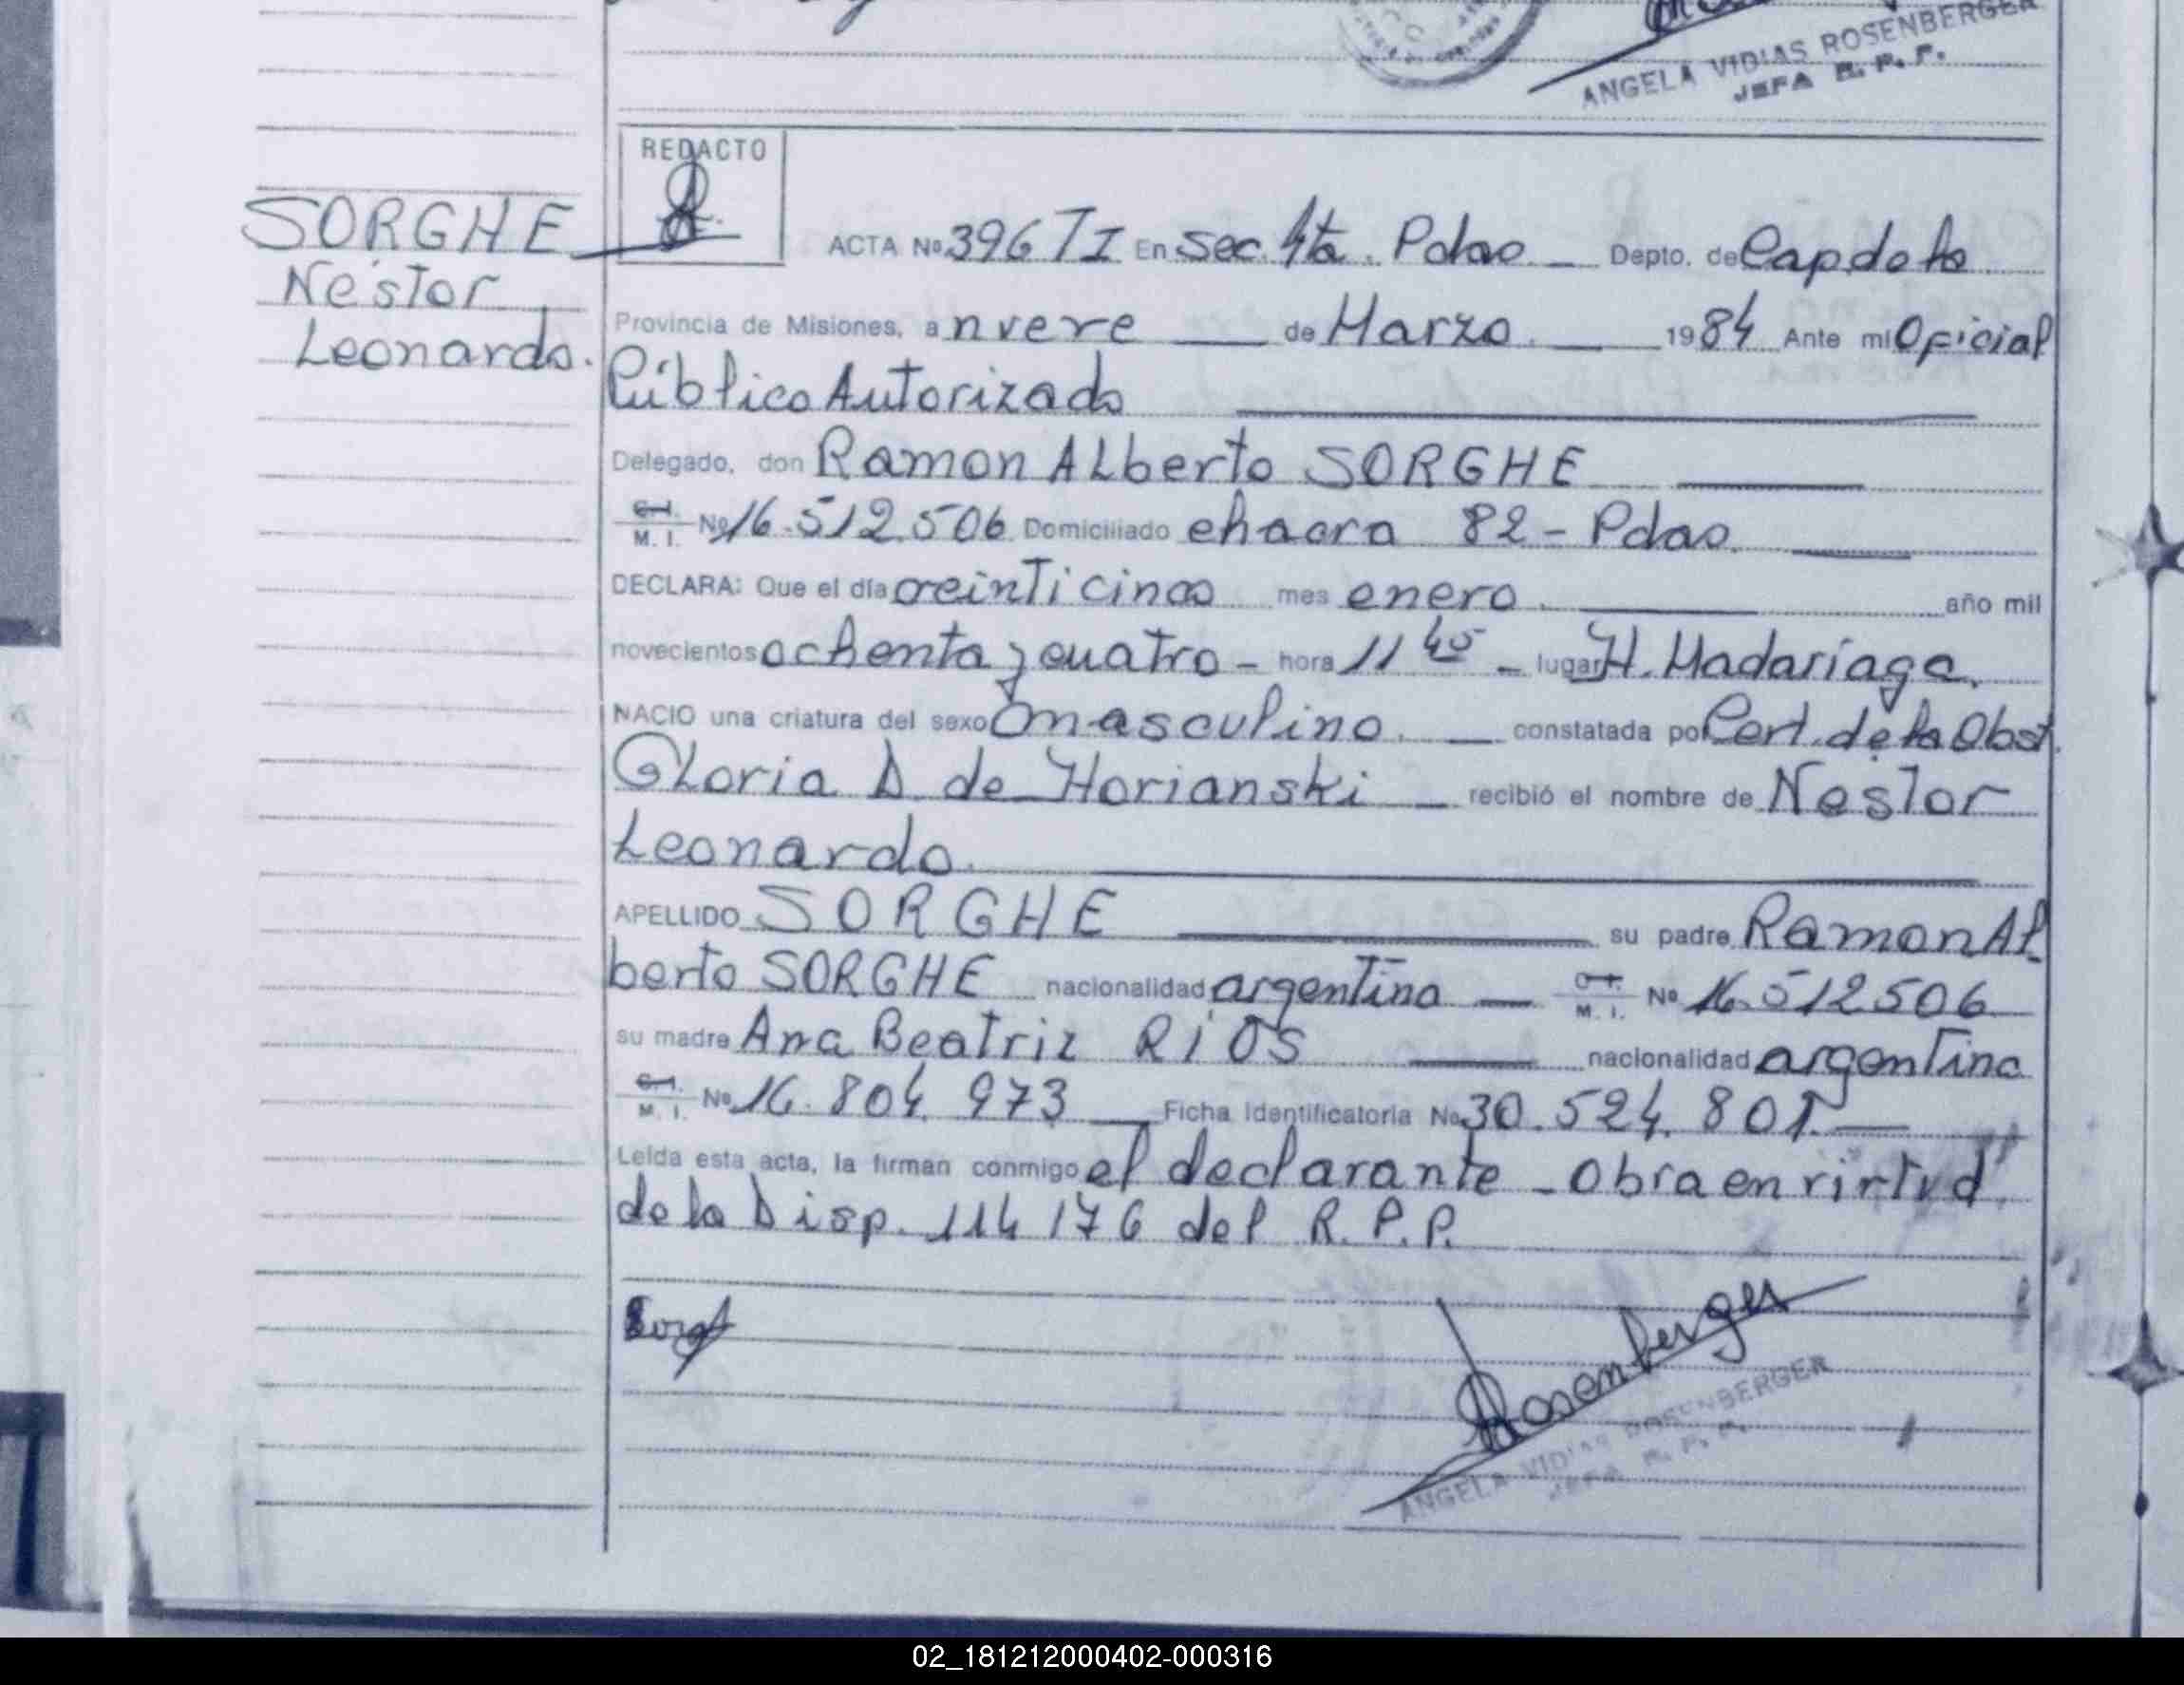 ANGELA VIDIAS ROSENBERGER
JEFA R. P. P.
REDACTO
SORGHE
Néstor
Leonardo.
ACTA Nº 396 TI En Sec. 4ta. Pdas — Depto. de Capde la
Provincia de Misiones, a nveve — de Marzo. — 1984 Ante mi Oficial
Público Autorizado
Delegado, don Ramon ALberto SORGHE
C.I. M. I. Nº 16.512.506 Domiciliado chacra 82 - Pdas.
DECLARA: Que el día veinticinco mes enero. año mil
novecientos ochenta y cuatro - hora 11 45 - lugar H. Madariaga.
NACIO una criatura del sexo masculino. — constatada por Cert. de la Obst.
GLoria D. de Horianski — recibió el nombre de Nestor
Leonardo.
APELLIDO SORGHE su padre Ramon Al
berto SORGHE nacionalidad argentina — C.I. M. I. Nº 16.512506
su madre Ana Beatriz RÍOS — nacionalidad argentina
C.I. M. I. Nº 16.804.973 — Ficha Identificatoria Nº 30.524.801.—
Leída esta acta, la firman conmigo el declarante - Obra en virtud
de la Disp. 114176 del R.P.P.
Rosenberger
ANGELA VIDIAS ROSENBERGER
JEFA R. P. P.
02_181212000402-000316